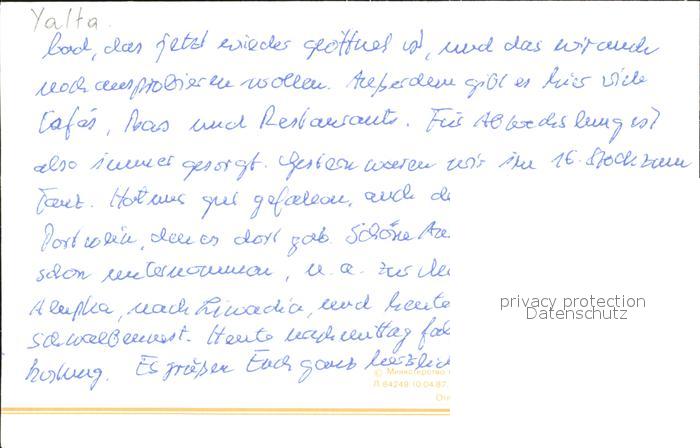 Yalta
bad, das jetzt wieder geöffnet ist, und das wir auch
noch ausprobieren wollen. Außerdem gibt es hier viele
Cafés, Bars und Restaurants. Für Abwechslung ist
also immer gesorgt. Gestern waren wir im 16. Stock zum
Tanz. Hat uns gut gefallen, auch de
Portwein, den es dort gab. Schöne Au
schon unternommen, u. a. zur
Alupka, nach Livadia, und heute
Schwalbennest. Heute nachmittag
Es grüßen Euch ganz herzlich
privacy protection
Datenschutz
© Министерство
Л 64249 10.04.87.